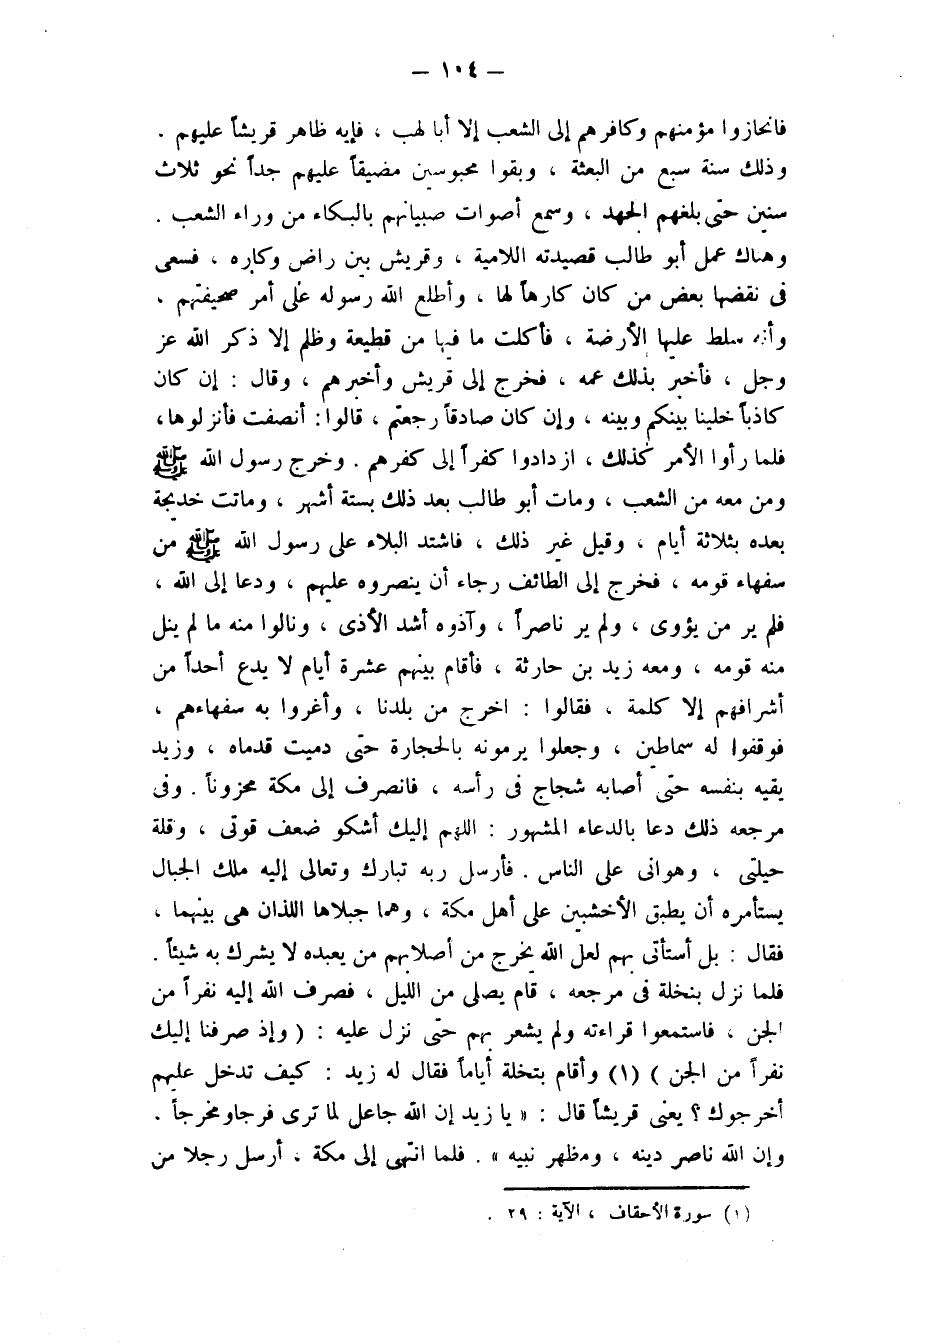 — ١٠٤ —
فانحازوا مؤمنهم وكافرهم إلى الشعب إلا أبا لهب ، فإيه ظاهر قريشاً عليهم .
وذلك سنة سبع من البعثة ، وبقوا محبوسين مضيقاً عليهم جداً نحو ثلاث
سنين حتى بلغهم الجهد ، وسمع أصوات صبيانهم بالبكاء من وراء الشعب .
وهناك عمل أبو طالب قصيدته اللامية ، وقريش بين راض وكاره ، فسعى
فى نقضها بعض من كان كارهاً لها ، وأطلع الله رسوله على أمر صحيفتهم ،
وأنه سلط عليها الأرضة ، فأكلت ما فيها من قطيعة وظلم إلا ذكر الله عز
وجل ، فأخبر بذلك عمه ، فخرج إلى قريش وأخبرهم ، وقال : إن كان
كاذباً خلينا بينكم وبينه ، وإن كان صادقاً رجعتم ، قالوا : أنصفت فأنزلوها ،
فلما رأوا الأمر كذلك ، ازدادوا كفراً إلى كفرهم . وخرج رسول الله ﷺ
ومن معه من الشعب ، ومات أبو طالب بعد ذلك بستة أشهر ، وماتت خديجة
بعده بثلاثة أيام ، وقيل غير ذلك ، فاشتد البلاء على رسول الله ﷺ من
سفهاء قومه ، فخرج إلى الطائف رجاء أن ينصروه عليهم ، ودعا إلى الله ،
فلم ير من يؤوى ، ولم ير ناصراً ، وآذوه أشد الأذى ، ونالوا منه ما لم ينل
منه قومه ، ومعه زيد بن حارثة ، فأقام بينهم عشرة أيام لا يدع أحداً من
أشرافهم إلا كلمة ، فقالوا : اخرج من بلدنا ، وأغروا به سفهاءهم ،
فوقفوا له سماطين ، وجعلوا يرمونه بالحجارة حتى دميت قدماه ، وزيد
يقيه بنفسه حتى أصابه شجاج فى رأسه ، فانصرف إلى مكة محزوناً . وفى
مرجعه ذلك دعا بالدعاء المشهور : اللهم إليك أشكو ضعف قوتى ، وقلة
حيلتى ، وهوانى على الناس . فأرسل ربه تبارك وتعالى إليه ملك الجبال
يستأمره أن يطبق الأخشبين على أهل مكة ، وهما جبلاها اللذان هى بينهما ،
فقال : بل أستأنى بهم لعل الله يخرج من أصلابهم من يعبده لا يشرك به شيئاً .
فلما نزل بنخلة فى مرجعه ، قام يصلى من الليل ، فصرف الله إليه نفراً من
الجن ، فاستمعوا قراءته ولم يشعر بهم حتى نزل عليه : ( وإذ صرفنا إليك
نفراً من الجن ) (١) وأقام بتخلة أياماً فقال له زيد : كيف تدخل عليهم
أخرجوك ؟ يعنى قريشاً قال : « يا زيد إن الله جاعل لما ترى فرجاو مخرجاً .
وإن الله ناصر دينه ، ومظهر نبيه » . فلما انتهى إلى مكة ، أرسل رجلا من
(١) سورة الأحقاف ، الآية : ٢٩ .